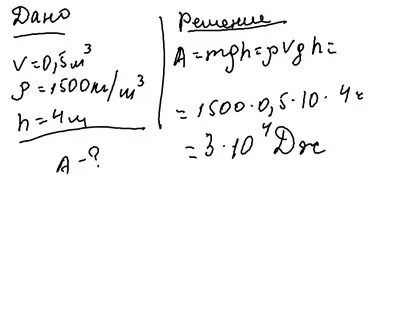 Дано
V=0,5м³
ρ=1500кг/м³
h=4м
A-?
Решение
A=mgh=ρVgh=
=1500·0,5·10·4=
=3·10⁴Дж